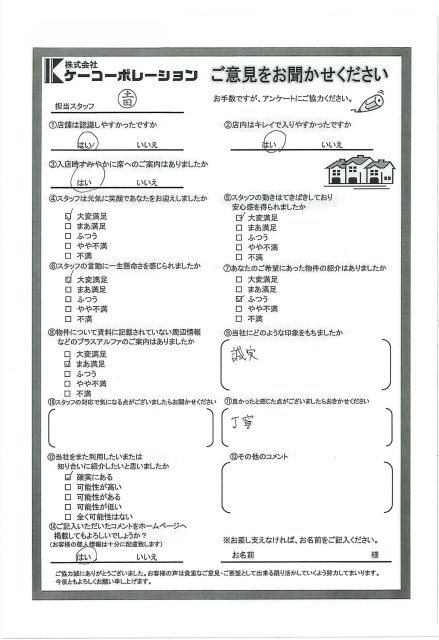 株式会社
ケーコーポレーション
ご意見をお聞かせください
担当スタッフ
お手数ですが、アンケートにご協力ください。
①店舗は認識しやすかったですか
はい いいえ
②店内はキレイで入りやすかったですか
はい いいえ
③入店時すみやかに席へのご案内はありましたか
はい いいえ
④スタッフは元気に笑顔であなたをお迎えしましたか
大変満足
まあ満足
ふつう
やや不満
不満
⑤スタッフの動きはてきぱきしており
安心感を得られましたか
大変満足
まあ満足
ふつう
やや不満
不満
⑥スタッフの言動に一生懸命さを感じられましたか
大変満足
まあ満足
ふつう
やや不満
不満
⑦あなたのご希望にあった物件の紹介はありましたか
大変満足
まあ満足
ふつう
やや不満
不満
⑧物件について資料に記載されていない周辺情報
などのプラスアルファのご案内はありましたか
大変満足
まあ満足
ふつう
やや不満
不満
⑨当社にどのような印象をもちましたか
誠実
⑩スタッフの対応で気になる点がございましたらお聞かせください
⑪良かったと感じた点がございましたらおきかせください
丁寧
⑫当社をまた利用したいまたは
知り合いに紹介したいと思いましたか
確実にある
可能性が高い
可能性がある
可能性が低い
全く可能性はない
⑬その他のコメント
⑭ご記入いただいたコメントをホームページへ
掲載してもよろしいでしょうか?
(お客様の個人情報は十分に配慮致します)
はい いいえ
※お差し支えなければ、お名前をご記入ください。
お名前 様
ご協力誠にありがとうございました。お客様の声は貴重なご意見・ご要望として出来る限り活かしていくよう努力してまいります。
今後ともよろしくお願い申し上げます。